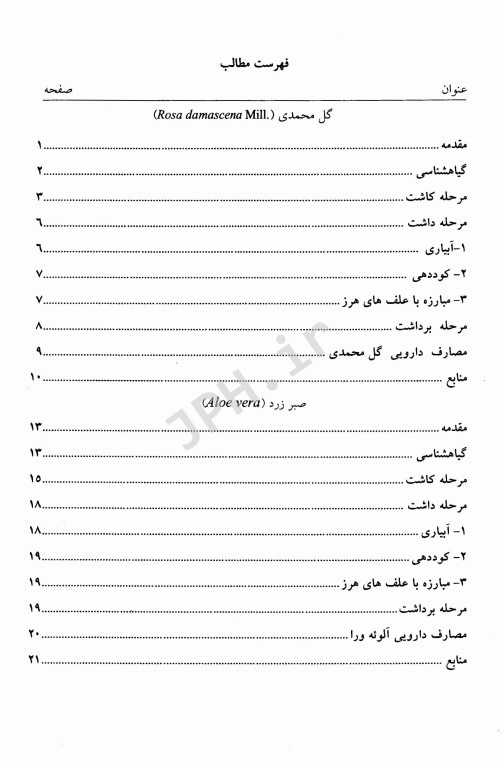 فهرست مطالب
عنوان صفحه
گل محمدی (Rosa damascena Mill.)
مقدمه ۱
گیاهشناسی ۲
مرحله کاشت ۳
مرحله داشت ۶
۱-آبیاری ۶
۲- کوددهی ۷
۳- مبارزه با علف های هرز ۷
مرحله برداشت ۸
مصارف دارویی گل محمدی ۹
منابع ۱۰
صبر زرد (Aloe vera)
مقدمه ۱۳
گیاهشناسی ۱۳
مرحله کاشت ۱۵
مرحله داشت ۱۸
۱- آبیاری ۱۸
۲- کوددهی ۱۹
۳- مبارزه با علف های هرز ۱۹
مرحله برداشت ۱۹
مصارف دارویی آلوئه ورا ۲۰
منابع ۲۱
JPH.ir